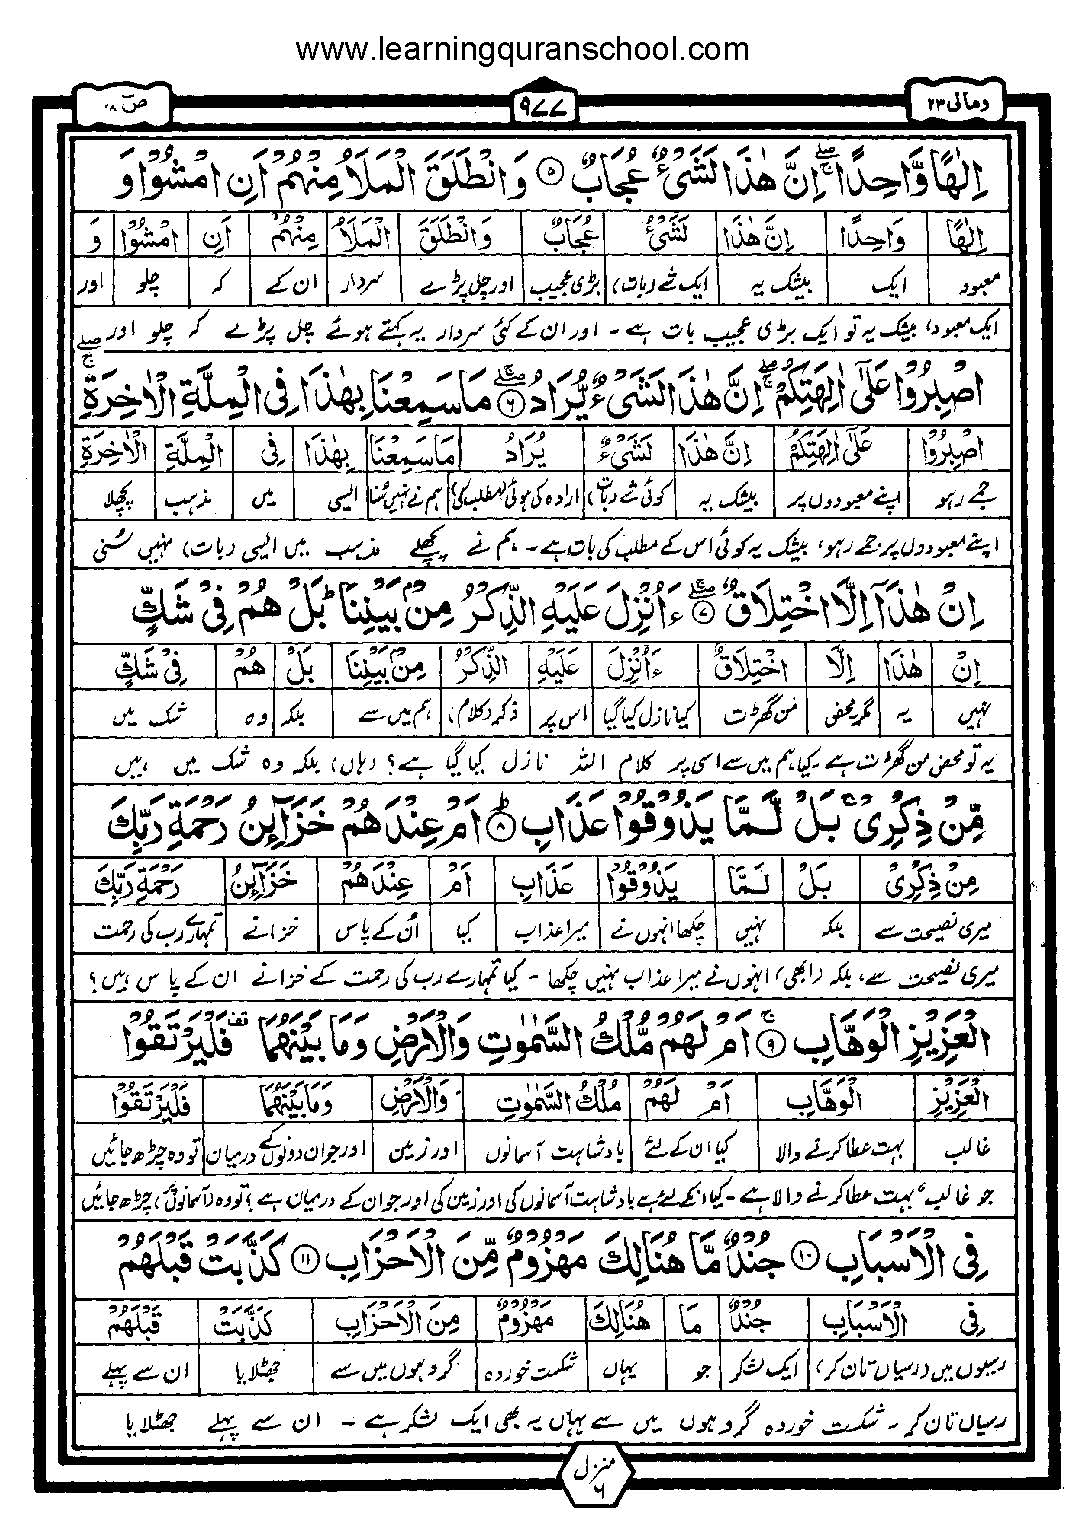 www.learningquranschool.com
ومالی ۲۳
۹۷۷
صٓ ۳۸
اِلٰهًا وَّاحِدًا ۚۖ اِنَّ هٰذَا لَشَیْءٌ عُجَابٌ ۵ وَانْطَلَقَ الْمَلَاُ مِنْهُمْ اَنِ امْشُوْا وَ
اِلٰهًا وَاحِدًا اِنَّ هٰذَا لَشَیْءٌ عُجَابٌ وَانْطَلَقَ الْمَلَاُ مِنْهُمْ اَنِ امْشُوْا وَ
معبود ایک بیشک یہ ایک شے (بات) بڑی عجیب اور چل پڑے سردار ان کے کہ چلو اور
ایک معبود، بیشک یہ تو ایک بڑی عجیب بات ہے۔ اور ان کے کئی سردار یہ کہتے ہوئے چل پڑے کہ چلو اور
اصْبِرُوْا عَلٰۤی اٰلِهَتِكُمْ ۚۖ اِنَّ هٰذَا لَشَیْءٌ یُّرَادُ ۶ۚۖ مَا سَمِعْنَا بِهٰذَا فِی الْمِلَّةِ الْاٰخِرَةِ ۚۖ
اصْبِرُوْا عَلٰۤی اٰلِهَتِكُمْ اِنَّ هٰذَا لَشَیْءٌ یُرَادُ مَا سَمِعْنَا بِهٰذَا فِی الْمِلَّةِ الْاٰخِرَةِ
جمے رہو اپنے معبودوں پر بیشک یہ کوئی شے (بات) ارادہ کی ہوئی (مطلب کی) ہم نے نہیں سُنا ایسی میں مذہب پچھلا
اپنے معبودوں پر جمے رہو، بیشک یہ کوئی اس کے مطلب کی بات ہے۔ ہم نے پچھلے مذہب میں ایسی (بات) نہیں سُنی
اِنْ هٰذَاۤ اِلَّا اخْتِلَاقٌ ۷ۚۖ ءَاُنْزِلَ عَلَیْهِ الذِّكْرُ مِنْۢ بَیْنِنَا ؕ بَلْ هُمْ فِیْ شَكٍّ
اِنْ هٰذَا اِلَّا اخْتِلَاقٌ ءَاُنْزِلَ عَلَیْهِ الذِّكْرُ مِنْۢ بَیْنِنَا بَلْ هُمْ فِیْ شَكٍّ
نہیں یہ مگر محض من گھڑت کیا نازل کیا گیا اس پر ذکر (کلام) ہم میں سے بلکہ وہ شک میں
یہ تو محض من گھڑت ہے۔ کیا ہم میں سے اسی پر کلام اللہ نازل کیا گیا ہے؟ (ہاں) بلکہ وہ شک میں ہیں
مِّنْ ذِكْرِیْ ۚ بَلْ لَّمَّا یَذُوْقُوْا عَذَابِ ۸ؕ اَمْ عِنْدَهُمْ خَزَآئِنُ رَحْمَةِ رَبِّكَ
مِنْ ذِكْرِیْ بَلْ لَمَّا یَذُوْقُوْا عَذَابِ اَمْ عِنْدَهُمْ خَزَآئِنُ رَحْمَةِ رَبِّكَ
میری نصیحت سے بلکہ نہیں چکھا انہوں نے میرا عذاب کیا اُن کے پاس خزانے تمہارے رب کی رحمت
میری نصیحت سے، بلکہ (ابھی) انہوں نے میرا عذاب نہیں چکھا۔ کیا تمہارے رب کی رحمت کے خزانے ان کے پاس ہیں؟
الْعَزِیْزِ الْوَهَّابِ ۹ۚ اَمْ لَهُمْ مُّلْكُ السَّمٰوٰتِ وَالْاَرْضِ وَمَا بَیْنَهُمَا ۫ فَلْیَرْتَقُوْا
الْعَزِیْزِ الْوَهَّابِ اَمْ لَهُمْ مُلْكُ السَّمٰوٰتِ وَالْاَرْضِ وَمَا بَیْنَهُمَا فَلْیَرْتَقُوْا
غالب بہت عطا کرنے والا کیا ان کے لئے بادشاہت آسمانوں اور زمین اور جو ان دونوں کے درمیان تو وہ چڑھ جائیں
جو غالب، بہت عطا کرنے والا ہے۔ کیا انکے لئے ہے بادشاہت آسمانوں کی اور زمین کی اور جو ان کے درمیان ہے؟ تو وہ (آسمانوں پر) چڑھ جائیں
فِی الْاَسْبَابِ ۱۰ جُنْدٌ مَّا هُنَالِكَ مَهْزُوْمٌ مِّنَ الْاَحْزَابِ ۱۱ كَذَّبَتْ قَبْلَهُمْ
فِی الْاَسْبَابِ جُنْدٌ مَا هُنَالِكَ مَهْزُوْمٌ مِنَ الْاَحْزَابِ كَذَّبَتْ قَبْلَهُمْ
رسیوں میں (رسیاں تان کر) ایک لشکر جو یہاں شکست خوردہ گروہوں میں سے جھٹلایا ان سے پہلے
رسیاں تان کر۔ شکست خوردہ گروہوں میں سے یہاں یہ بھی ایک لشکر ہے۔ ان سے پہلے جھٹلایا
منزل ۶